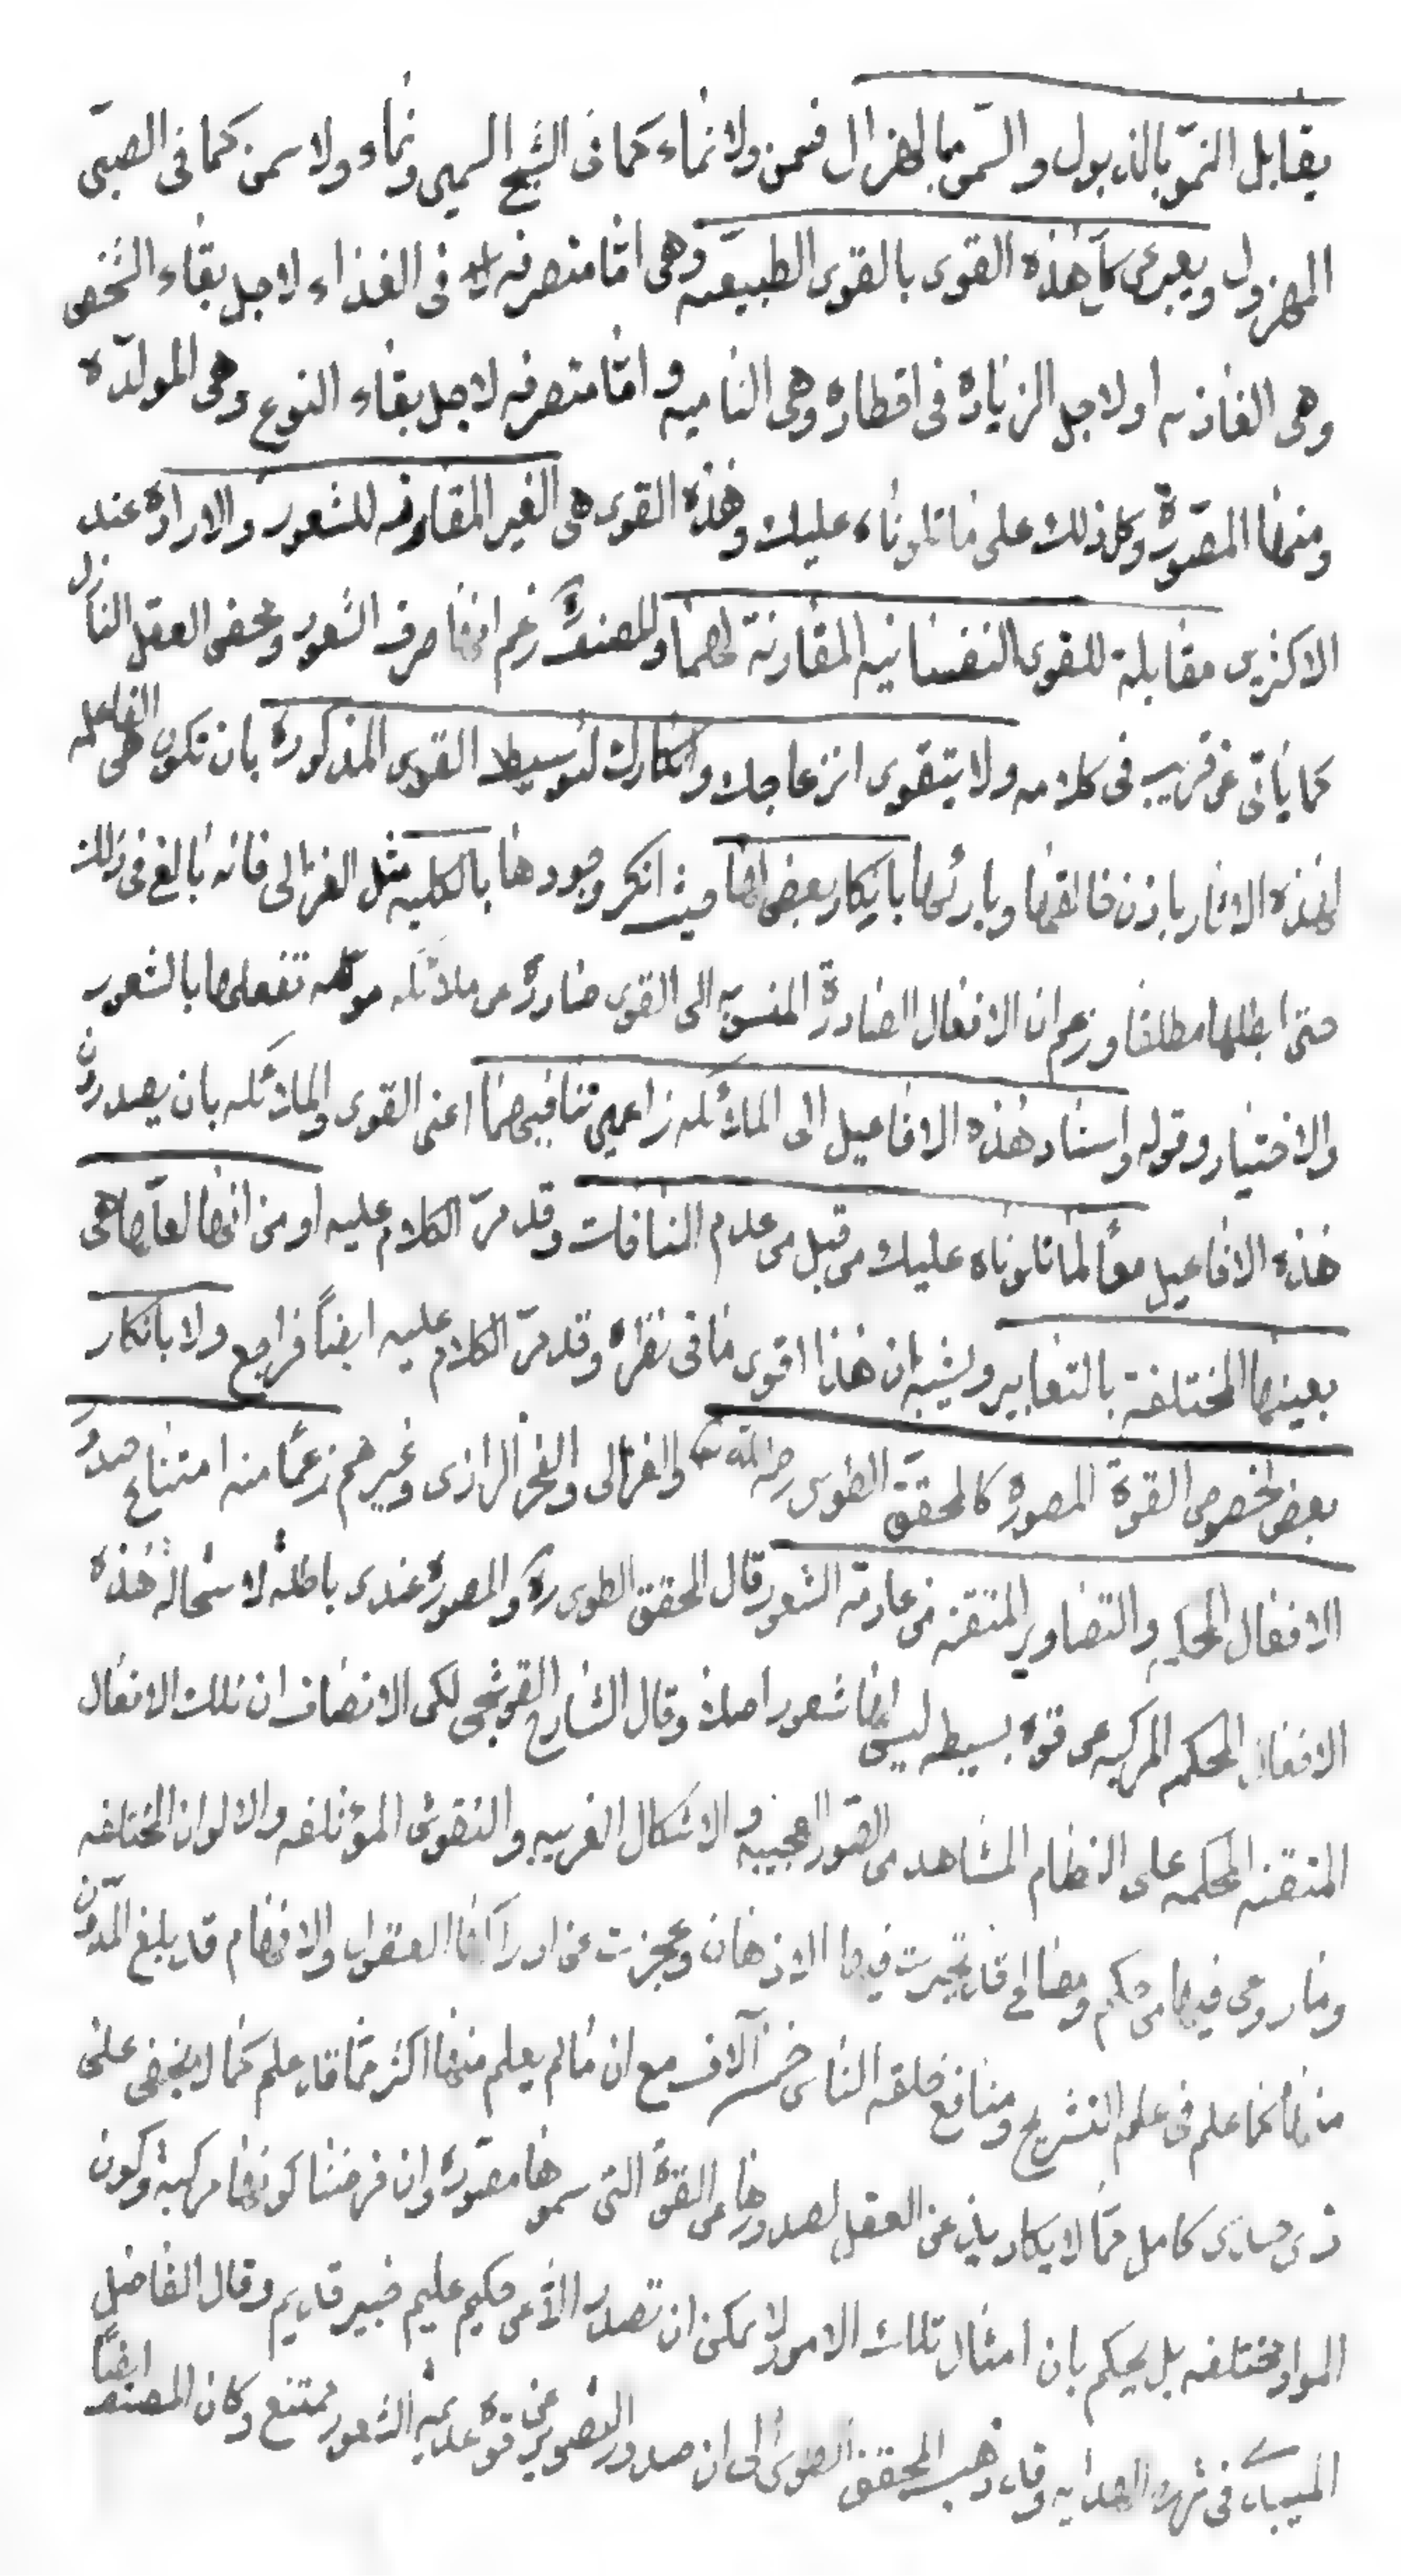 يقابل النموّ بالذبول والسمن بالهزال فسمن ولا نماء كما فى الشيخ السمين ونماء ولا سمن كما فى الصبىّ
المهزول ويعبر عن كل هذه القوى بالقوى الطبيعيه وهى امّا متصرفه فى الغذاء لاجل بقاء الشخص
وهى الغاذيه او لاجل الزيادة فى اقطاره وهى الناميه وامّا متصرفه لاجل بقاء النوع وهى المولّدة
ومنها المصوّرة وكل ذلك على ما تلوناه عليك وهذه القوى هى الغير المقارنه للشعور والارادة عند
الاكثرين مقابلة للقوى النفسانيه المقارنة لهما وللمصنف زعم انها صرف الشعور ومحض العقل النازل
كما ياتى عن قريب فى كلامه ولا يتقوى انزعاجك وانكارك لتوسيط القوى المذكورة بان تكون هى الفاعله
لهذه الاثار باذن خالقها وبارئها بانكار بعض لها حيث انكر وجودها بالكليه مثل الغزالى فانه بالغ فى ذلك
حتى ابطلها مطلقا وزعم ان الافعال الصادرة المنسوبه الى القوى صادرة عن ملائكه موكله تفعلها بالشعور
والاختيار وقوله واسناد هذه الافاعيل الى الملائكه زاعمين تنافيهما اعنى القوى والملائكه بان يصدرون
هذه الافاعيل معاً لما تلوناه عليك من قبل من عدم المنافات وقد مرّ الكلام عليه او من انها لعلّها هى
بعينها المختلفة بالتعابير ويشبه ان هذا اقوى ما فى نظره وقد مرّ الكلام عليه ايضاً فراجع ولا بانكار
بعض لخصوص القوة المصورة كالمحقق الطوسى رحمه الله والغزالى والفخر الرازى وغيرهم زعماً منه امتناع صدور
الافعال المحكمه والتصاوير المتقنه من عادمة الشعور قال المحقق الطوسى ره والمصورة عندى باطلة لاستحالة هذه
الافعال المحكمه المركبه عن قوة بسيطه ليس لها شعور اصلا وقال الشارح القوشجى لكن الانصاف ان تلك الافعال
المتقنه المحكمه على النظام المشاهد من الصور العجيبه والاشكال الغريبه والنقوش المؤتلفه والالوان المختلفه
وما روعى فيها من حكم ومصالح قد تحيرت فيها الاذهان وعجزت عن ادراكها العقول والافهام قد بلغ المدوّن
منها كما علم فى علم التشريح ومنافع خلقه الناس خمسة آلاف مع ان ما لم يعلم منها اكثر ممّا قد علم كما لا يخفى على
ذى حدس كامل ممّا لا يكاد يذعن العقل لصدورها عن القوّة التى سموها مصوّرة وان فرضنا كونها مركبة وكون
المواد مختلفه بل يحكم بان امثال تلك الامور لا يمكن ان تصدر الّا عن حكيم عليم خبير قديم وقال الفاضل
الميبدى فى شرح الهدايه وقد ذهب المحقق الطوسى الى ان صدور التصوير عن قوة عديمة الشعور ممتنع وكان المصنف ايضاً